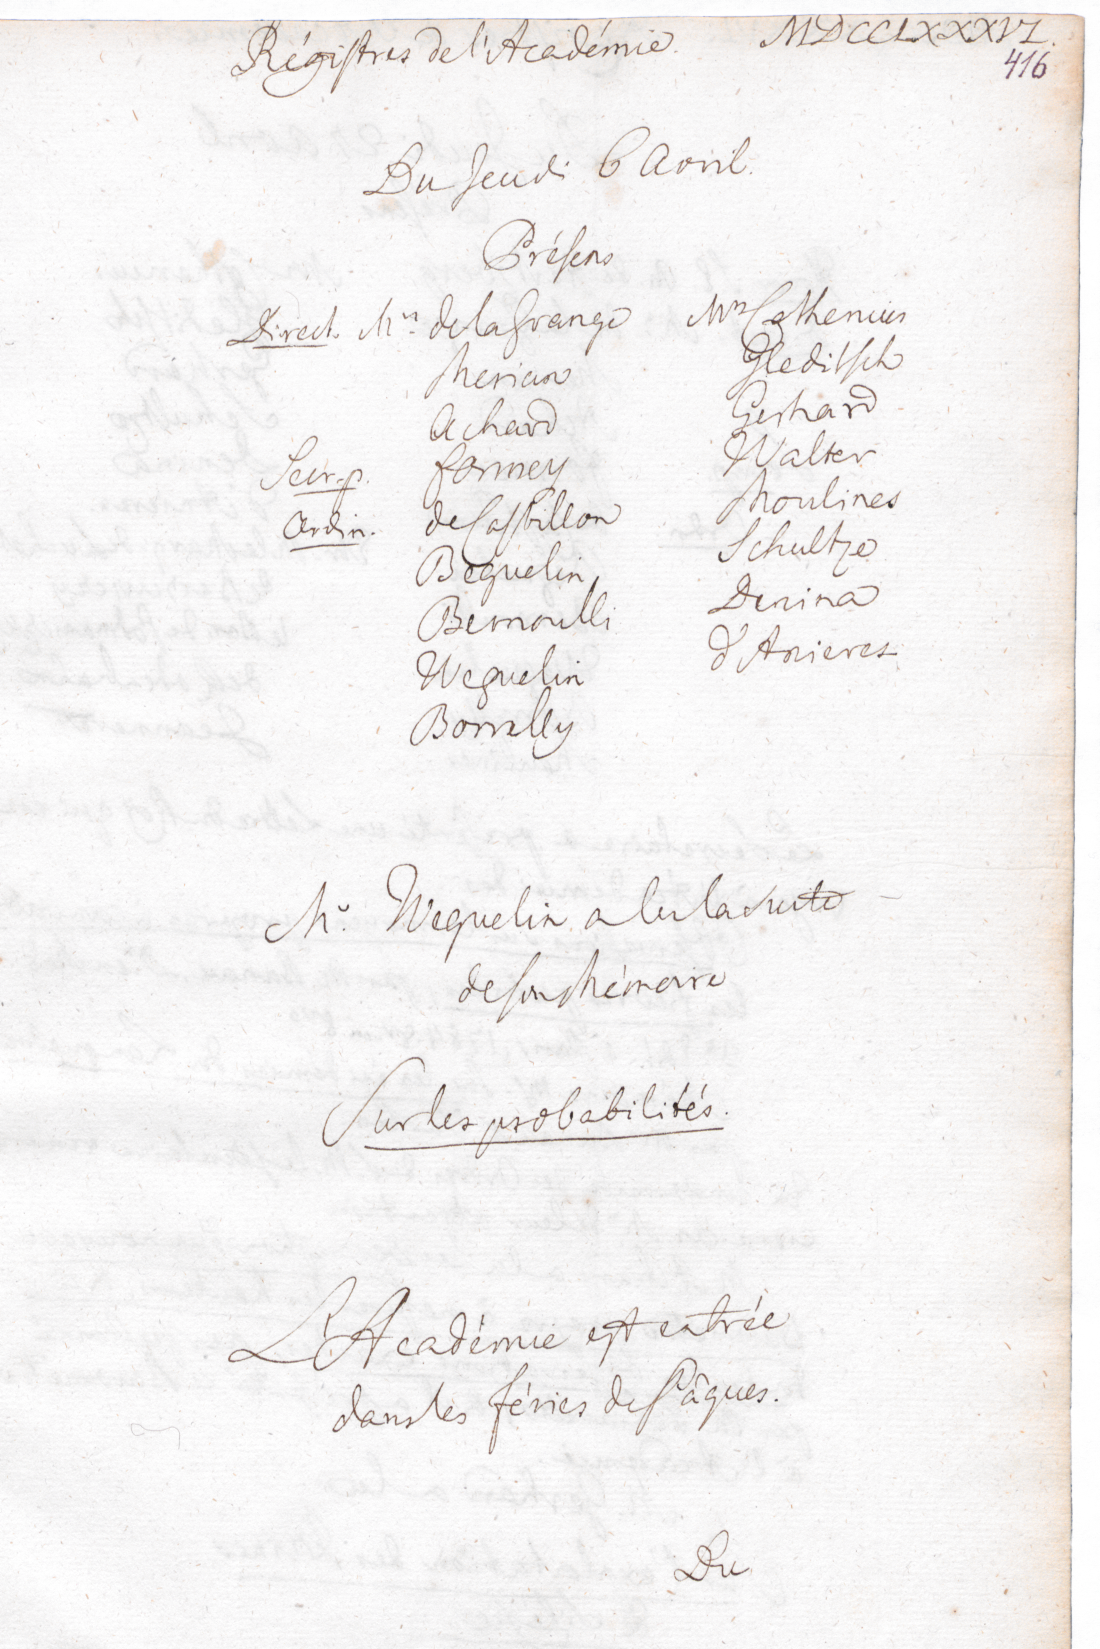 Régistres de l'Académie. MDCCLXXXVI.
416
Du Jeudi 6 Avril.
Présens
Direct. Mrs. de la Grange
Merian
Achard
Secr. p. Formey
Ordin. de Castillon
Beguelin
Bernoulli
Weguelin
Borrelly
Mrs Cothenius
Gleditsch
Gerhard
Walter
Moulines
Schultze
Denina
d'Anieres
Mr. Weguelin a lu la suite
de son Mémoire
Sur les probabilités.
L'Académie est entrée
dans les féries de Pâques.
Du